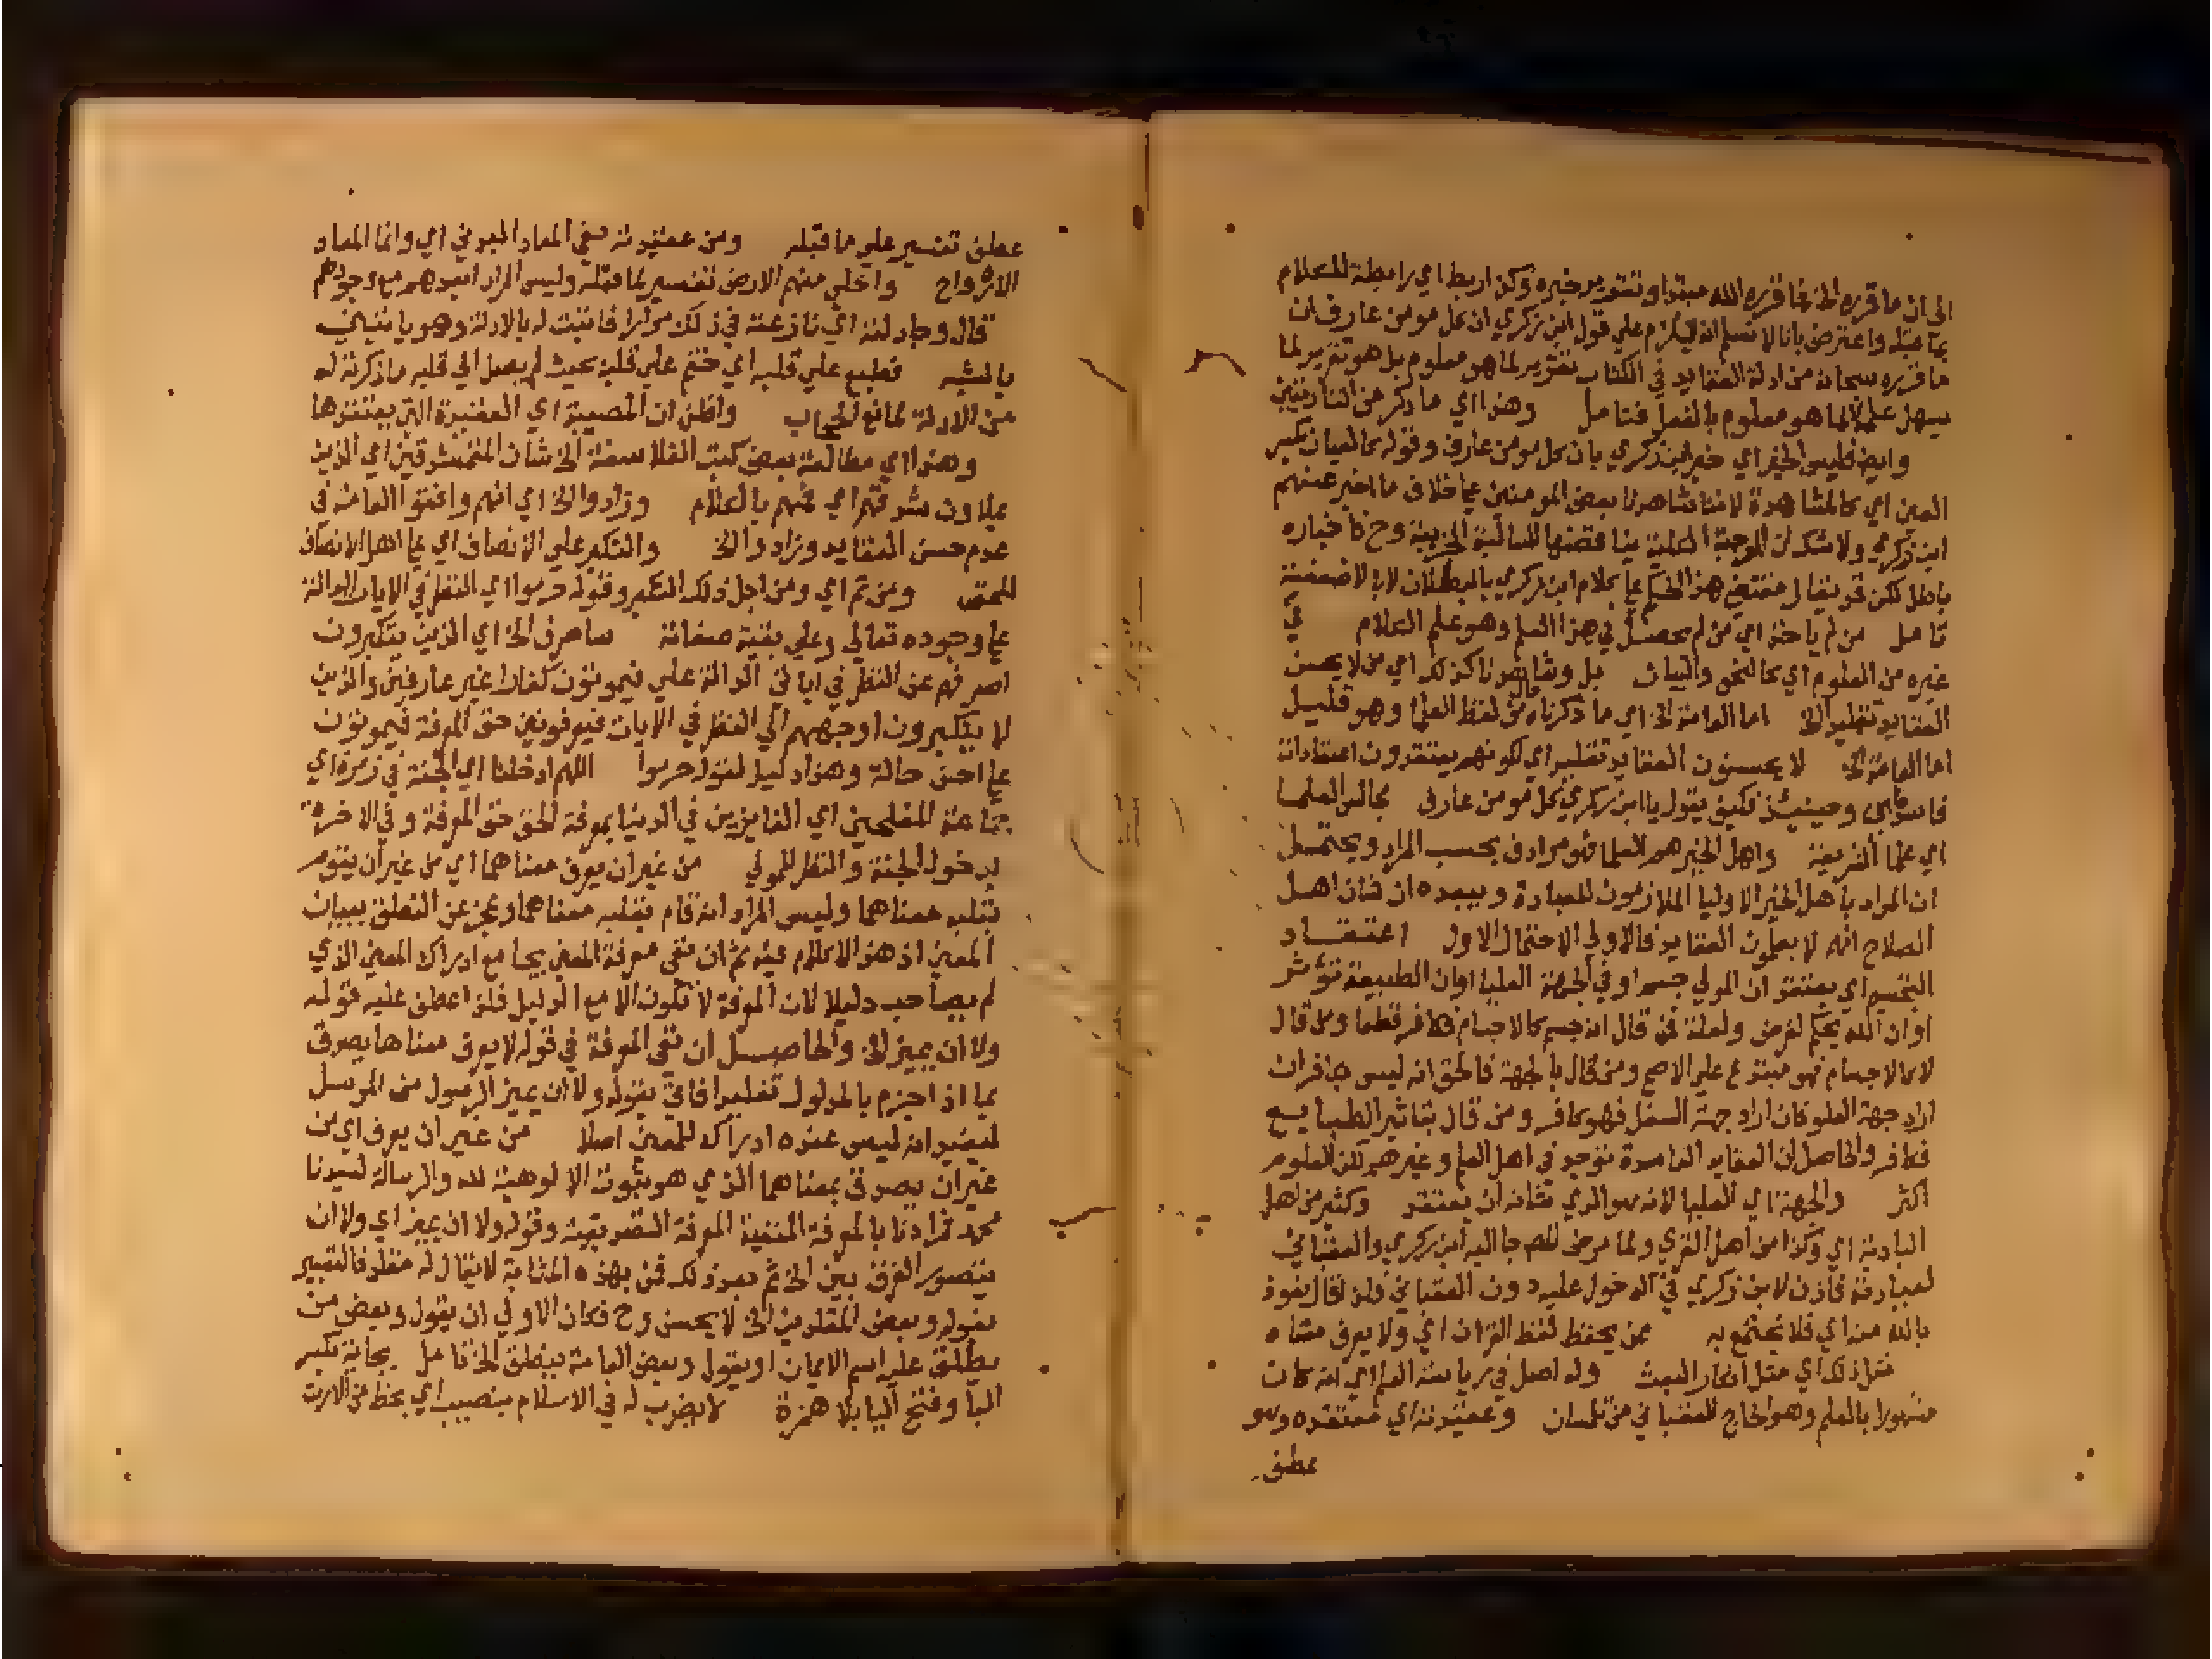 الى ان ما قرره الخ فما قرره الله مبتدا وتقدير خبره وكن اربط اي رابطة للكلام
بما قبله واعترض بانا لا نسلم انه يلزم علي قول ابن زكري ان كل مومن عارف ان
ما قرره سبحانه من ادلة العقايد في الكتاب تقرير لما هو معلوم بل هو تقرير لما
يسهل علمه لا لما هو معلوم بالفعل فتامل وهذا اي ما ذكر من
وايضا فليس الخبر اي خبر ابن زكري بان كل مومن عارف وقوله كالعيان بكسر
العين اي كالمشاهدة لاننا شاهدنا بعض المومنين علي خلاف ما اخبر عنهم
ابن زكري ولا شك ان الموجبة الكلية يناقضها السالبة الجزيية وح فاخباره
باطل لكن قد يقال مقتضي هذا الحكم علي كلام ابن زكري بالبطلان لا بالاضعفية
تامل من لم ياخذ اي من لم يحصل في هذا العلم وهو علم الكلام في
غيره من العلوم اي كالنحو والبيان بل وشاهدنا كذلك اي من لا يحسن
العقايد تقليدا الخ اما العامة الخ اي ما ذكرناه من لفظ العلما وهو قليل
اما العامة الخ لا يحسنون العقايد تقليدا اي لكونهم يعتقدون اعتقادات
فاسدة وحينيذ فكيف يقول يا ابن زكري كل مومن عارف مجالس العلما
اي علما الشريعة واهل الخير هم العلما فهو مرادف بحسب المراد ويحتمل
ان المراد باهل الخير الاوليا الملازمون للعبادة ويبعده ان شان اهل
الصلاح انهم لا يعلمون العقايد فالاولي الاحتمال الاول اعتقاد
التجسيم اي يعتقد ان المولي جسم او في الجهة العليا او ان الطبيعة تؤثر
او ان الله يحكم لغرض ولعلة فمن قال انه جسم كالاجسام فكافر قطعا ومن قال
لا كالاجسام فهو مبتدع علي الاصح ومن قال بالجهة فالحق انه ليس بكافر ان
اراد جهة العلو فان اراد جهة السفل فهو كافر ومن قال بتاثير الطبايع
فكافر والحاصل ان العقايد الفاسدة توجد في اهل العلم وغيرهم لكن العلوم
اكثر والجهة اي العليا لانه هو الذي شانه ان يعتقد وكثير من اهل
البادية اي وكذا من اهل القري ولما مرض للم جا اليه ابن زكري والعقباني
لعيادته فاذن لابن زكري في الدخول عليه دون العقباني فلذا قال نعوذ
بالله منه اي فلا نجتمع به ممن يحفظ لفظ القران اي ولا يعرف معناه
مثل ذلك اي مثل انكار البعث وله اصل في رياسة العلم اي انه كان
مشهورا بالعلم وهو الحاج العقباني من تلمسان وعقيدته اي معتقده وهو
عطف
عطف تفسير علي ما قبله ومن عقيدته نفي المعاد البدني اي وانما المعاد
الارواح واخلي منهم الارض تفسير لما قبله وليس المراد ابعدهم مع وجودهم
قال وجادلته اي نازعته في ذلك مرارا فاثبت له بالادلة وهو ياتيني
بالشبه فطبع علي قلبه اي ختم علي قلبه بحيث لم يصل الي قلبه ما ذكرته له
من الادلة لمانع الحجاب واظن ان المصيبة اي العقيدة التي يعتقدها
وهذا اي مطالعة بعض كتب الفلاسفة الخ شان المتمشدقين اي الذين
يملاون شدقهم اي فمهم بالكلام وزادوا الخ اي انهم وافقوا العامة في
عدم حسن العقايد وزادوا الخ والتكبر علي الانصاف اي علي اهل الانصاف
للحق ومن ثم اي ومن اجل ذلك التكبر وقوله حرموا اي النظر في الايات الدالة
علي وجوده تعالي وعلي بقية صفاته ساصرف الخ اي الذين يتكبرون
اصرفهم عن النظر في اياتي الدالة علي فيموتون كفارا غير عارفين والذين
لا يتكبرون اوجههم الي النظر في الايات فيعرفونني حق المعرفة فيموتون
علي احسن حالة وهذا دليل لقوله حرموا اللهم ادخلنا اي الجنة في زمرة اي
جماعة المفلحين اي الفايزين في الدنيا بمعرفة الحق حق المعرفة وفي الاخرة
بدخول الجنة والنظر للمولي من غير ان يعرف معناهما اي من غير ان يقوم
بقلبه معناهما وليس المراد انه قام بقلبه معناهما وعجز عن النطق ببيان
المعني اذ هذا لا كلام فيه ثم ان نفي معرفة المعني يجامع ادراك المعني الذي
لم يصاحب دليلا لان المعرفة لا تكون الا مع الدليل فلذا عطف عليه قوله
ولا ان يميز الخ والحاصل ان نفي المعرفة في قوله لا يعرف معناها يصدق
بما اذا جزم بالمدلول تقليدا فاتي بقوله ولا ان يميز الرسول من المرسل
ليفيد انه ليس عنده ادراك للمعني اصلا من غير ان يعرف اي من
غير ان يصدق بمعناهما الذي هو ثبوت الالوهية لله والرسالة لسيدنا
محمد فمرادنا بالمعرفة المنفية المعرفة التصديقية وقوله ولا ان يميز اي ولا ان
يتصور الفرق بين الخ ثم بعد ذلك فمن بهذه المثابة لا يقال له مقلد فالتعبير
بقوله وبعض المقلدين الخ لا يحسن وح فكان الاولي ان يقول وبعض من
يطلق عليه اسم الايمان او يقول وبعض العامة ينطق الخ تامل بجانب بكسر
البا وفتح اليا بلا همزة لا يضرب له في الاسلام بنصيب اي بحظ من الارث